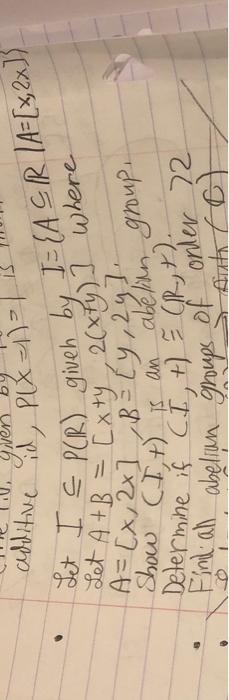 given by
additive id, P(X=1)=1 is
• Let I ⊆ P(R) given by I={A⊆R | A=[x,2x]}
Let A+B = [x+y, 2(x+y)] where
A=[x,2x], B=[y,2y].
Show (I,+) is an abelian group.
Determine if (I,+) ≅ (R,+).
• Find all abelian groups of order 72